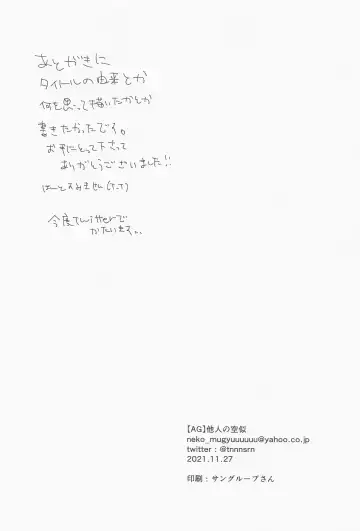 あとがきに
タイトルの由来とか
何を思って描いたかとか
書きたかったです。
お手にとって下さって
ありがとうございました!!
今度twitterで
かたります。。
【AG】他人の空似
neko_mugyuuuuuu@yahoo.co.jp
twitter : @tnnnsrn
2021.11.27
印刷 : サングループさん